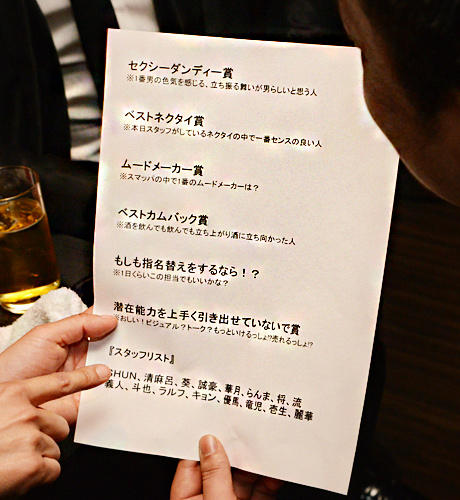 セクシーダンディー賞
※1番男の色気を感じる、立ち振る舞いが男らしいと思う人
ベストネクタイ賞
※本日スタッフがしているネクタイの中で一番センスの良い人
ムードメーカー賞
※スマッパの中で1番のムードメーカーは？
ベストカムバック賞
※酒を飲んでも飲んでも立ち上がり酒に立ち向かった人
もしも指名替えをするなら！？
※1日くらいこの担当でもいいかな？
潜在能力を上手く引き出せていないで賞
※おしい！ビジュアル？トーク？もっといけるっしょ!?売れるっしょ!?
『スタッフリスト』
SHUN、清麻呂、葵、誠豪、華月、らんま、将、流
義人、斗也、ラルフ、キョン、優馬、竜児、壱生、麗華